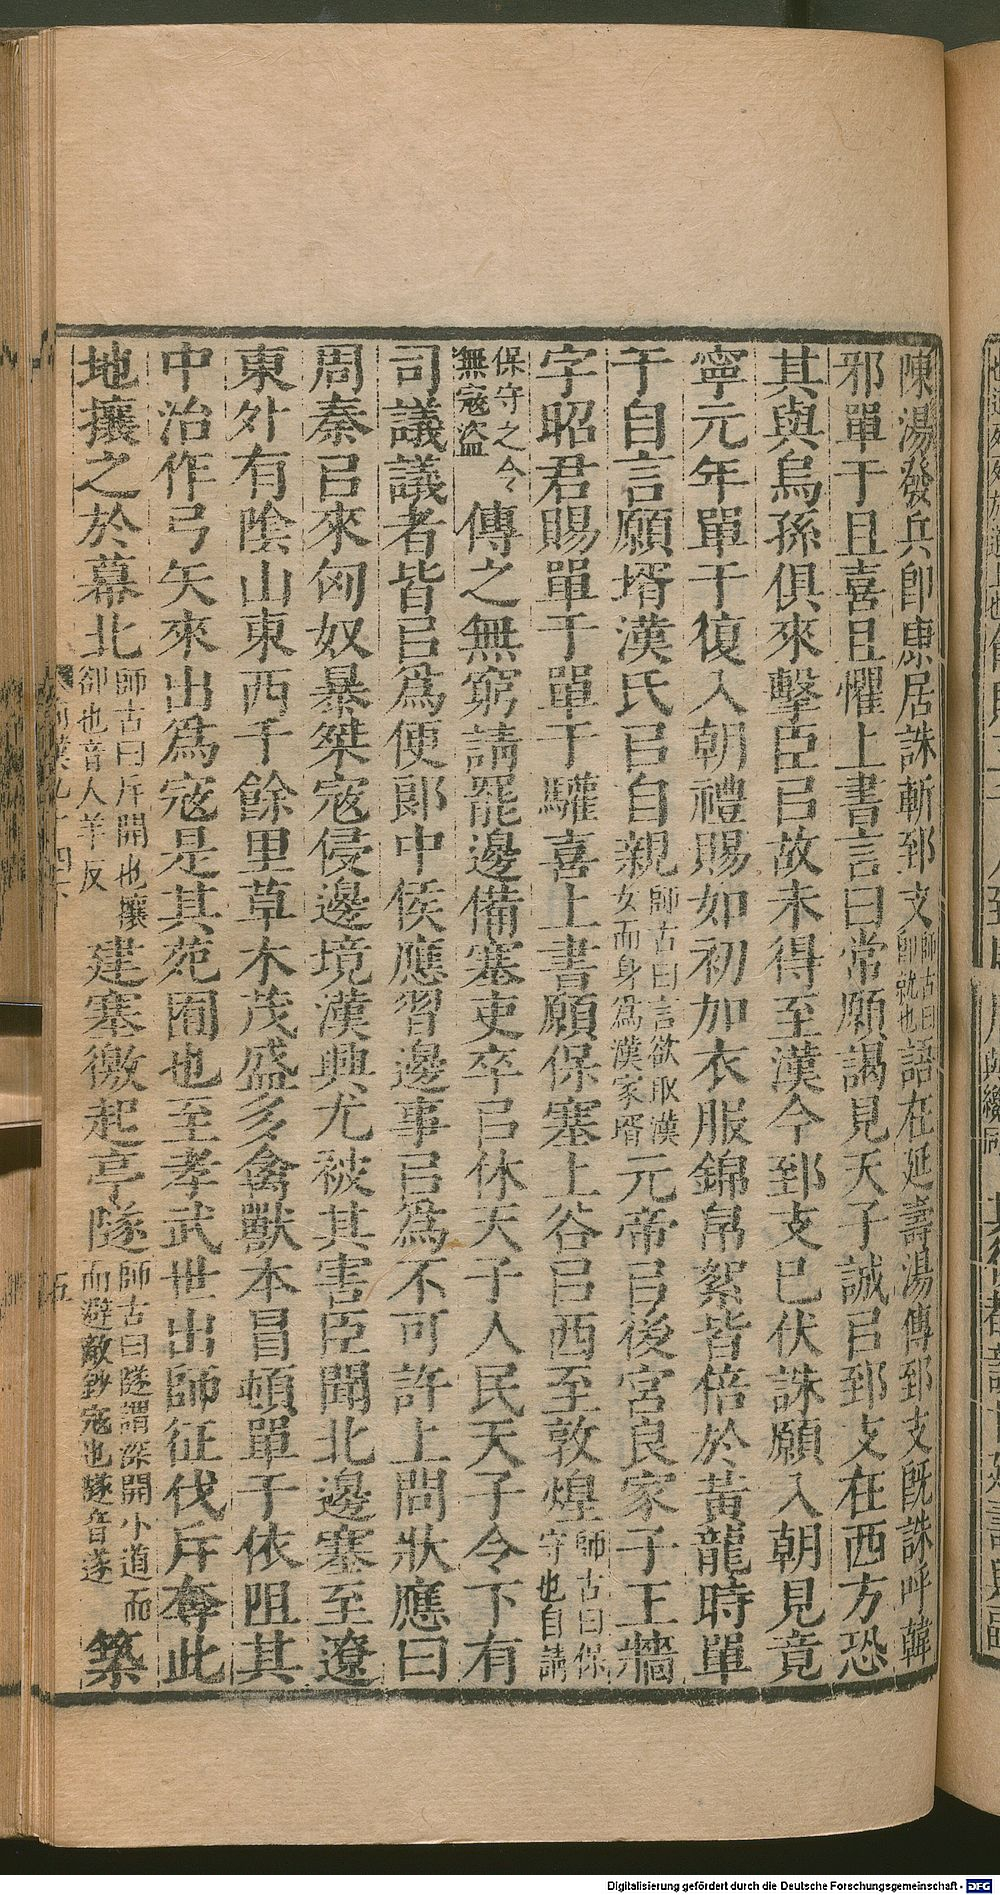 陳湯發兵即康居誅斬郅支師古曰即就也語在延壽湯傳郅支既誅呼韓
邪單于且喜且懼上書言曰常願謁見天子誠㠯郅支在西方恐
其與烏孫俱來擊臣㠯故未得至漢今郅支已伏誅願入朝見竟
寧元年單于復入朝禮賜如初加衣服錦帛絮皆倍於黃龍時單
于自言願壻漢氏㠯自親師古曰言欲取漢女而身為漢家壻元帝㠯後宮良家子王牆
字昭君賜單于單于驩喜上書願保塞上谷㠯西至敦煌師古曰保守也自請
保守之令無寇盜傳之無窮請罷邊備塞吏卒㠯休天子人民天子令下有
司議議者皆㠯為便郎中侯應習邊事㠯為不可許上問狀應曰
周秦㠯來匈奴暴桀寇侵邊境漢興尤被其害臣聞北邊塞至遼
東外有陰山東西千餘里草木茂盛多禽獸本冒頓單于依阻其
中治作弓矢來出為寇是其苑囿也至孝武世出師征伐斥奪此
地攘之於幕北師古曰斥開也攘卻也音人羊反建塞徼起亭隧師古曰隧謂深開小道而而避敵鈔寇也隧音遂築
五
Digitalisierung gefördert durch die Deutsche Forschungsgemeinschaft - DFG